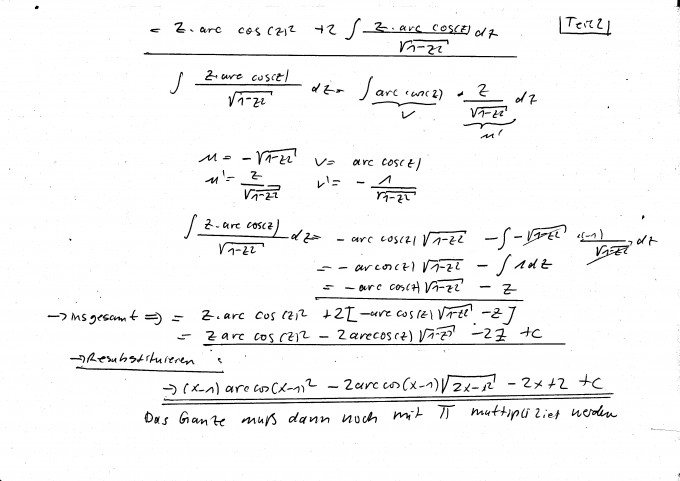 = z · arc cos(z)² + 2 ∫ z · arc cos(z) / √(1-z²) dz [Teil 2]
∫ z · arc cos(z) / √(1-z²) dz = ∫ arc cos(z) · z / √(1-z²) dz
v u'
u = -√(1-z²) v = arc cos(z)
u' = z / √(1-z²) v' = - 1 / √(1-z²)
∫ z · arc cos(z) / √(1-z²) dz = - arc cos(z) √(1-z²) - ∫ -√(1-z²) · (-1) / √(1-z²) dz
= - arc cos(z) √(1-z²) - ∫ 1 dz
= - arc cos(z) √(1-z²) - z
→ Insgesamt ⇒ = z · arc cos(z)² + 2[-arc cos(z) √(1-z²) - z]
= z arc cos(z)² - 2 arc cos(z) √(1-z²) - 2z + c
→ Resubstituieren :
→ (x-1) arc cos(x-1)² - 2 arc cos(x-1) √(2x-x²) - 2x + 2 + c
Das Ganze muß dann noch mit π multipliziet werden